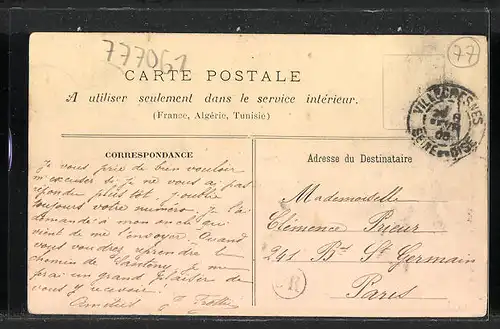 777061
77
CARTE POSTALE
A utiliser seulement dans le service intérieur.
(France, Algérie, Tunisie)
VILLECRESNES
SEINE-ET-OISE
CORRESPONDANCE
Je vous prie de bien vouloir
m'excuser si je ne vous ai pas
répondu plus tôt. J'oublie
toujours votre numéro, je l'ai
demandé à mon oncle qui
vient de me l'envoyer. Quand
vous voudrez reprendre le
chemin de Santeny je me
ferai un grand plaisir de
vous y recevoir!
Amitiés
Adresse du Destinataire
Mademoiselle
Clémence Prieur
241 Bd St Germain
Paris
R